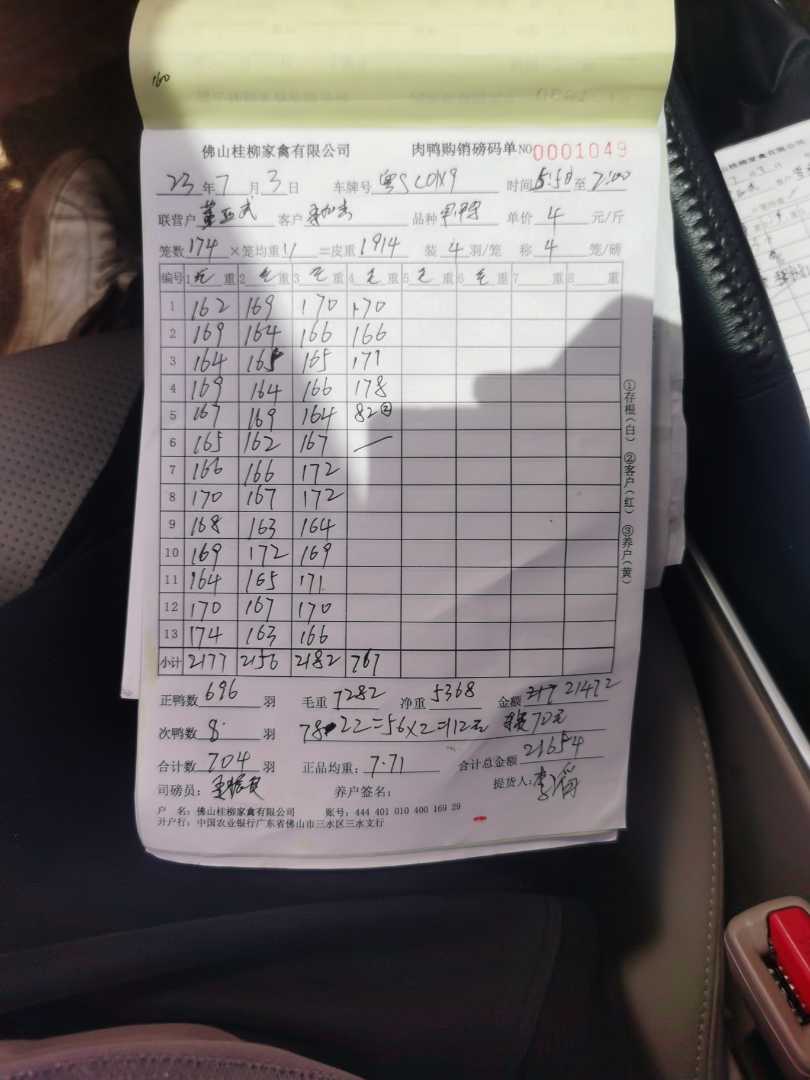 160
佛山桂柳家禽有限公司 肉鸭购销磅码单 NO 0001049
23 年 7 月 3 日 车牌号 粤S 时间 5:50 至 2:00
联营户 客户 品种 单价 4 元/斤
笼数 174 ×笼均重 11 =皮重 1914 装 4 羽/笼 称 4 笼/磅
编号 1 毛 重 2 毛 重 3 毛 重 4 毛 重 5 毛 重 6 毛 重 7 重 8 重
1 162 169 170 170
2 169 164 166 166
3 164 165 165 171
4 169 164 166 178
5 167 169 164 82②
6 165 162 167 —
7 166 166 172
8 170 167 172
9 168 163 164
10 169 172 169
11 164 165 171
12 170 167 170
13 174 163 166
小计 2177 2156 2182 767
正鸭数 696 羽 毛重 7282 净重 5368 金额 21472
次鸭数 8 羽 78-22=56×2=112元 70元
合计数 704 羽 正品均重: 7.71 合计总金额 21654
司磅员: 养户签名: 提货人:
户 名: 佛山桂柳家禽有限公司 账号: 444 401 010 400 169 29
开户行: 中国农业银行广东省佛山市三水区三水支行
①存根(白) ②客户(红) ③养户(黄)